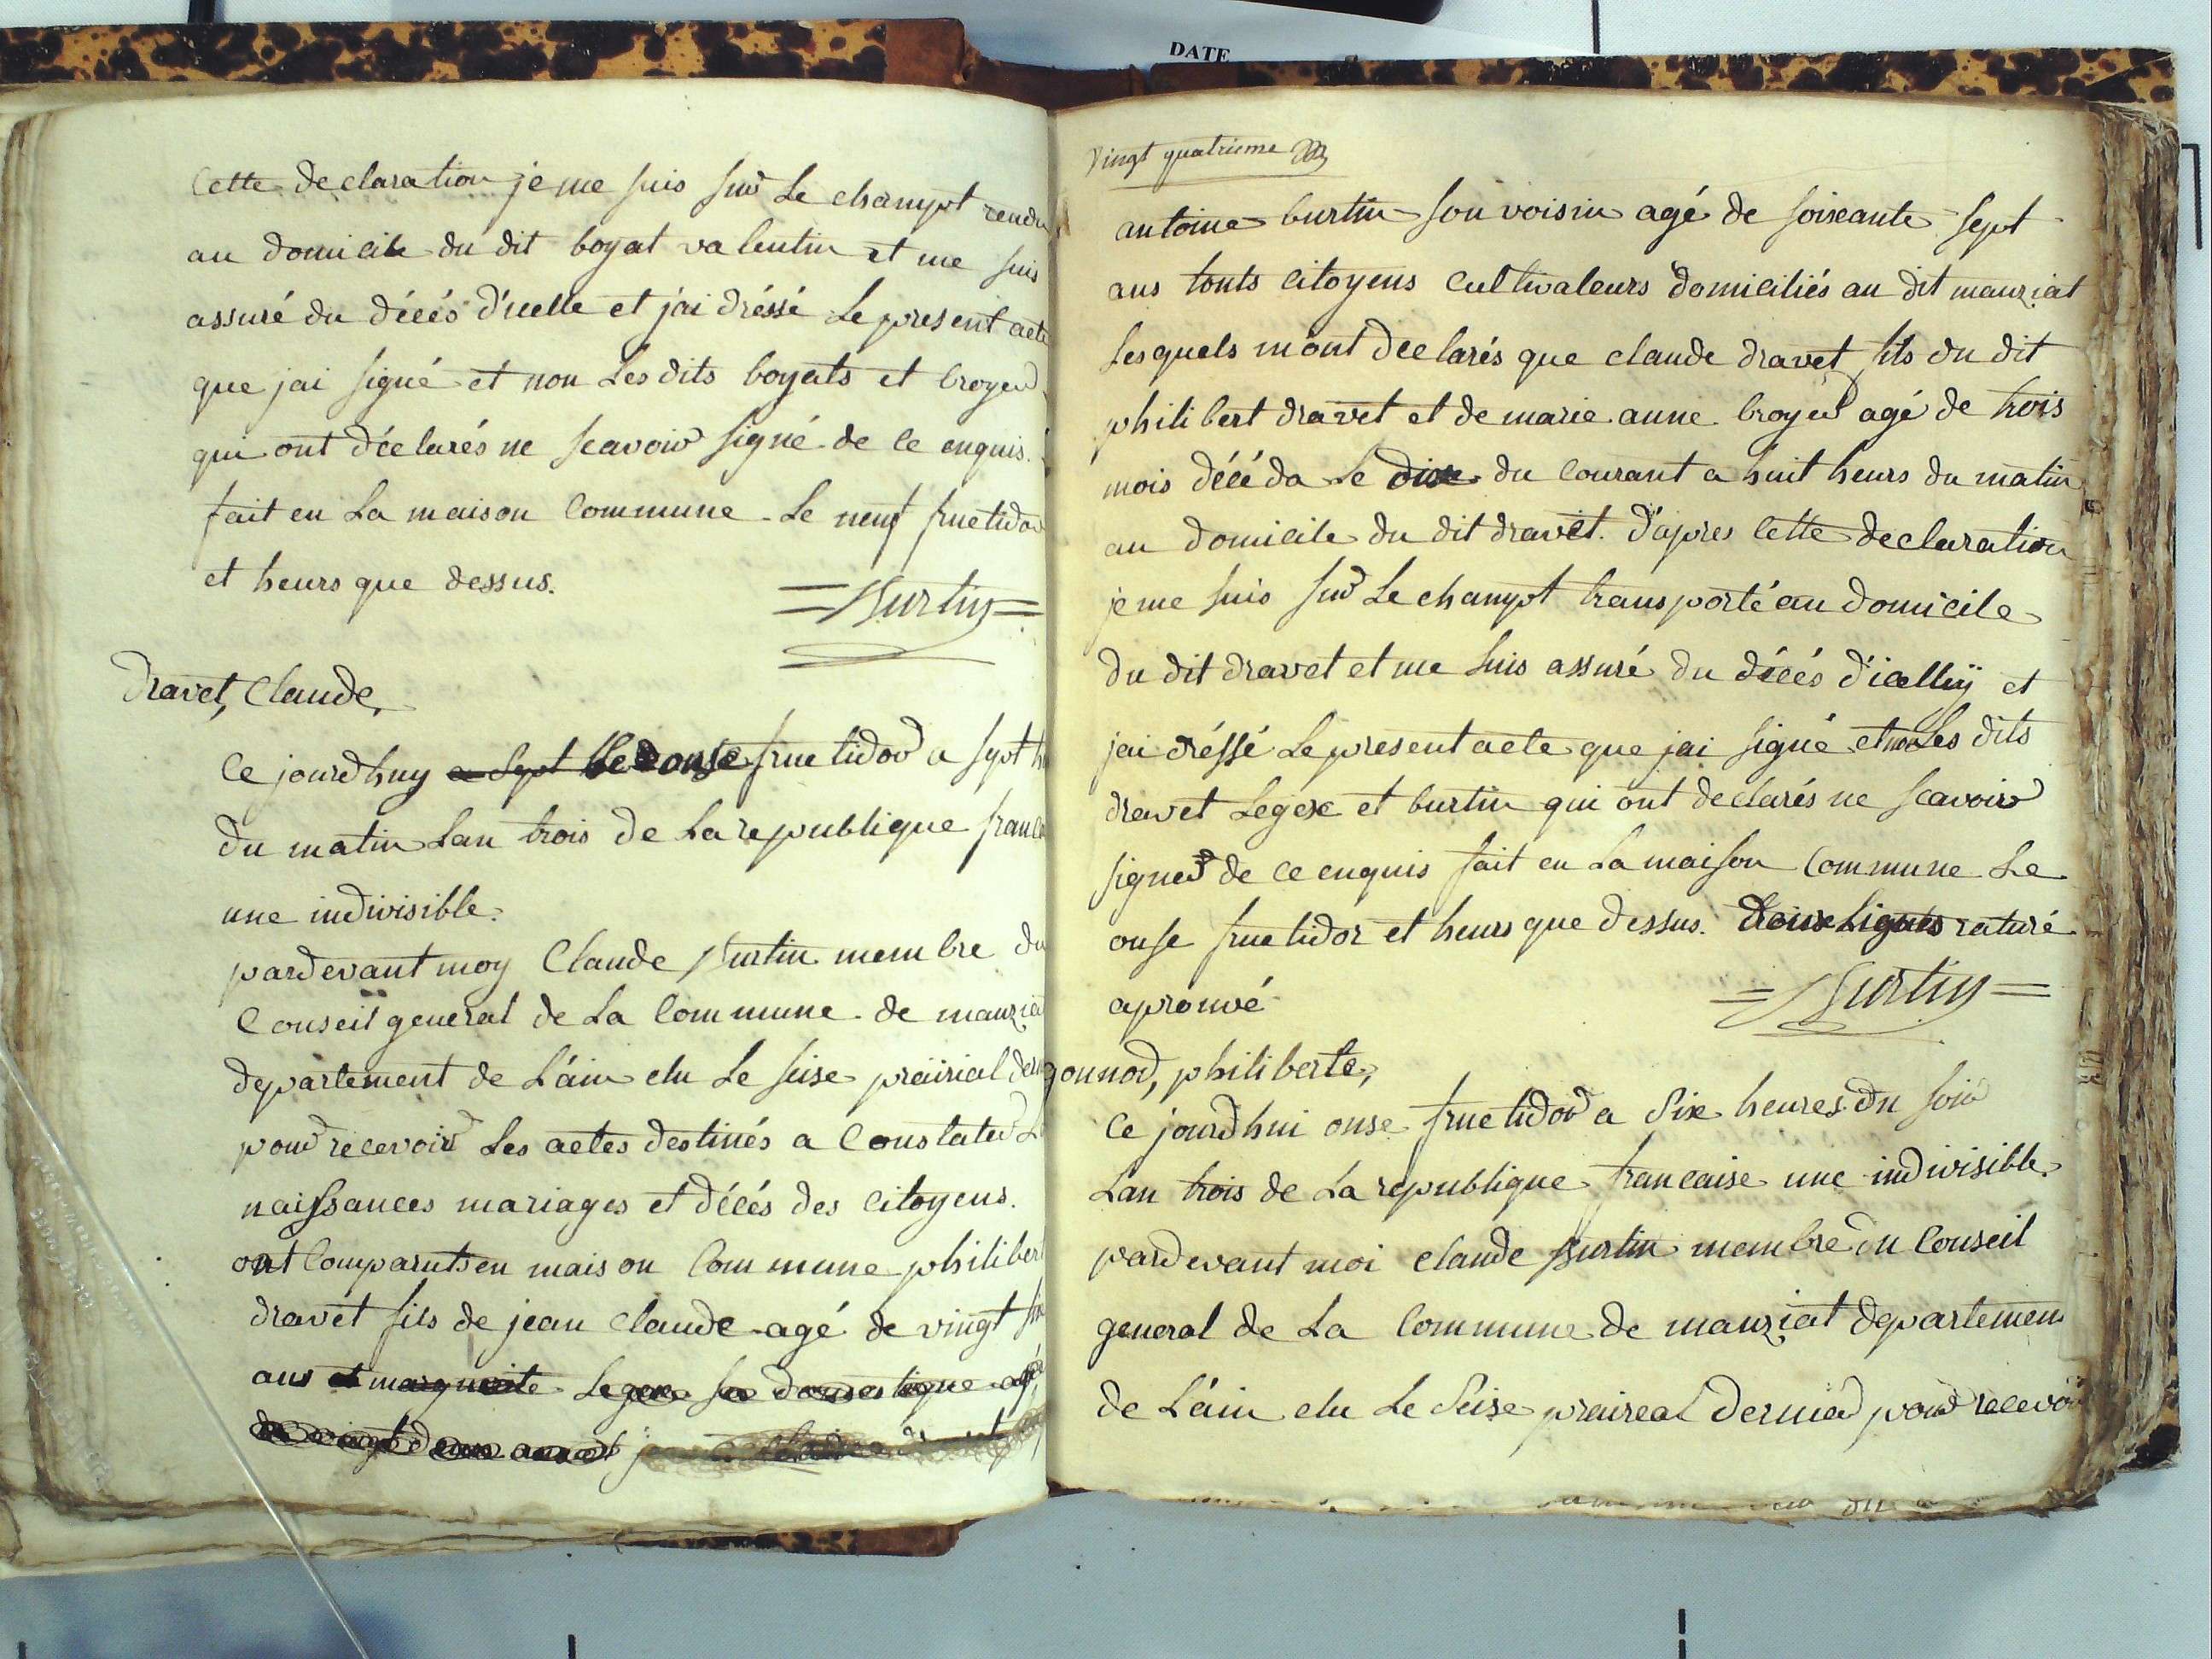 DATE
Cette declaration je me suis sur Le champt rendu
au domicile du dit boyat valentin et me suis
assuré du décés d'icelle et j'ai dréssé Le present acte
que jai signé et non Les dits boyats et broyer
qui ont déclarés ne scavoir signé de ce enquis.
fait en La maison Commune Le neuf fructidor
et heurs que dessus.
=Burtin=
Dravet, Claude,
Ce jourdhuy a Sept Le onse fructidor a sept
du matin Lan trois de La republique
une indivisible.
pardevant moy Claude Burtin membre du
Conseil general de La Commune de manziat
departement de L'ain elu Le seise prairial
pour recevoir Les actes destinés a Constater
naissances mariages et décés des Citoyens.
ont Comparuts en maison Commune philibert
dravet fils de jean Claude agé de vingt
ans et marguerite Legere sa domestique agé
de vingt deux ans et
vingt quatrieme
antoine burtin son voisin agé de soixante sept
ans touts Citoyens Cultivateurs domiciliés au dit manziat
Lesquels mont declarés que claude dravet fils du dit
philibert dravet et de marie anne broyer agé de trois
mois décéda Le dise du Courant a huit heurs du matin
au domicile du dit dravet. d'apres Cette declaration
je me suis sur Le champt transporté au domicile
du dit dravet et me suis assuré du décés d'icelluÿ et
jai dréssé Le present acte que jai signé et non Les dits
dravet Legere et burtin qui ont declarés ne scavoir
signer de ce enquis fait en La maison Commune Le
onse fructidor et heurs que dessus. Lignes raturé
aprouvé
=Burtin=
gonnod, philiberte,
Ce jourdhui onse fructidor a Six heures du soir
Lan trois de La republique francaise une indivisible.
pardevant moi Claude Burtin membre du Conseil
general de La Commune de manziat departement
de L'ain elu Le Seise praireal dernier pour recevoir